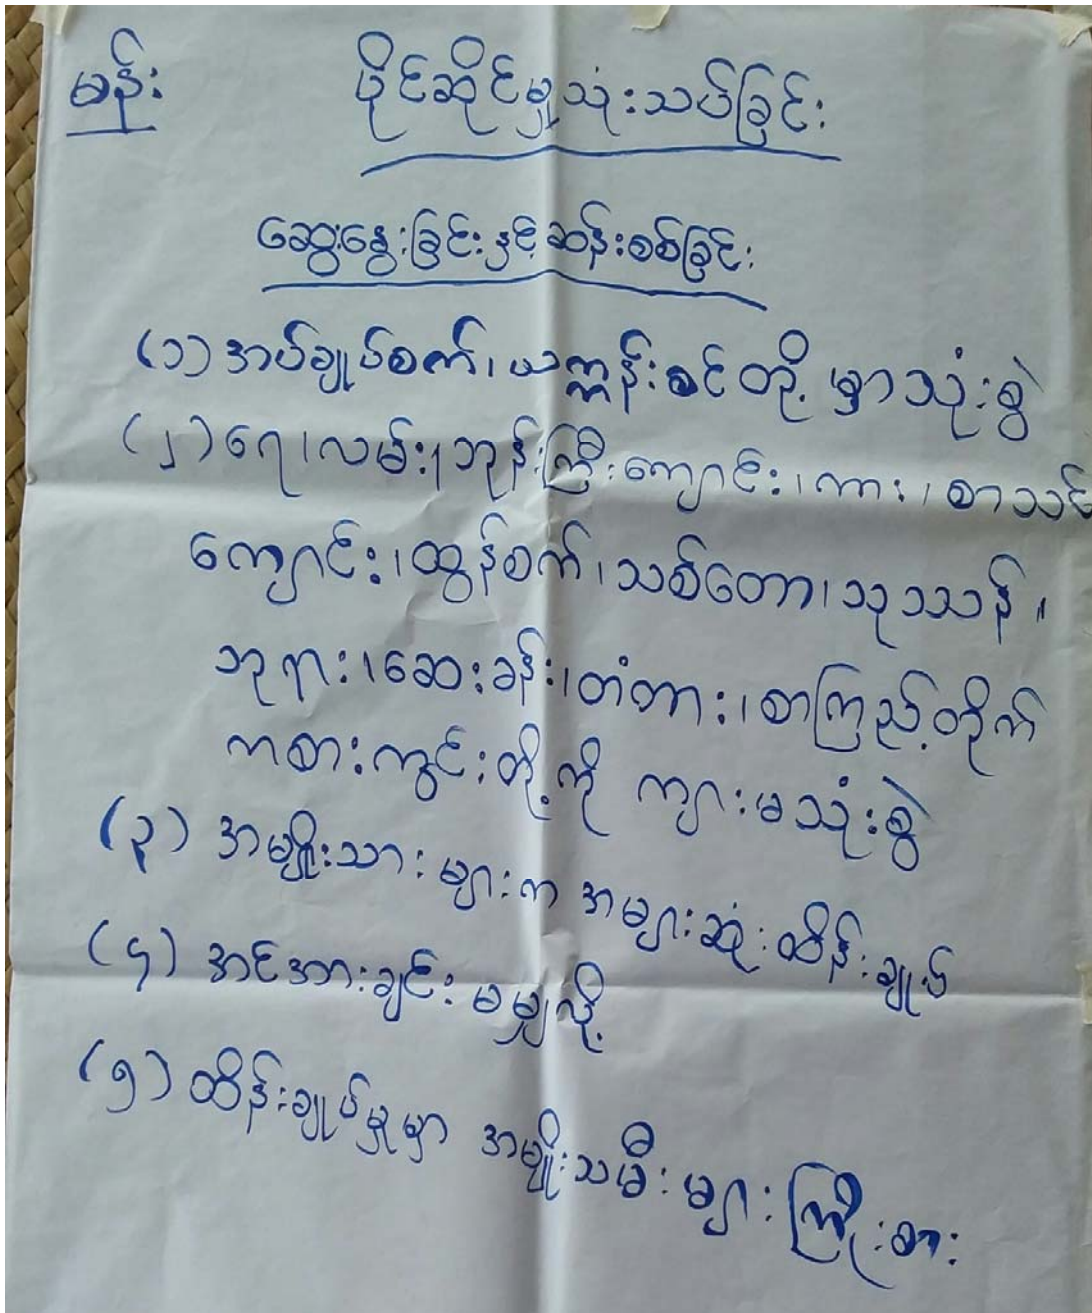 မန်း ပိုင်ဆိုင်မှုသုံးသပ်ခြင်း
ဆွေးနွေးခြင်းနှင့်ဆန်းစစ်ခြင်း
(၁) အပ်ချုပ်စက်၊ယက္ကန်းစင်တို့ မှာသုံးစွဲ
(၂) ရေ၊လမ်း၊ဘုန်းကြီးကျောင်း၊ကား၊စာသင်
ကျောင်း၊ထွန်စက်၊သစ်တော၊သုဿန်၊
ဘုရား၊ဆေးခန်း၊တံတား၊စာကြည့်တိုက်
ကစားကွင်းတို့ကို ကျားမသုံးစွဲ
(၃) အမျိုးသားများက အများဆုံးထိန်းချုပ်
(၄) အင်အားချင်းမမျှလို့
(၅) ထိန်းချုပ်မှုမှာ အမျိုးသမီးများကြိုးစား